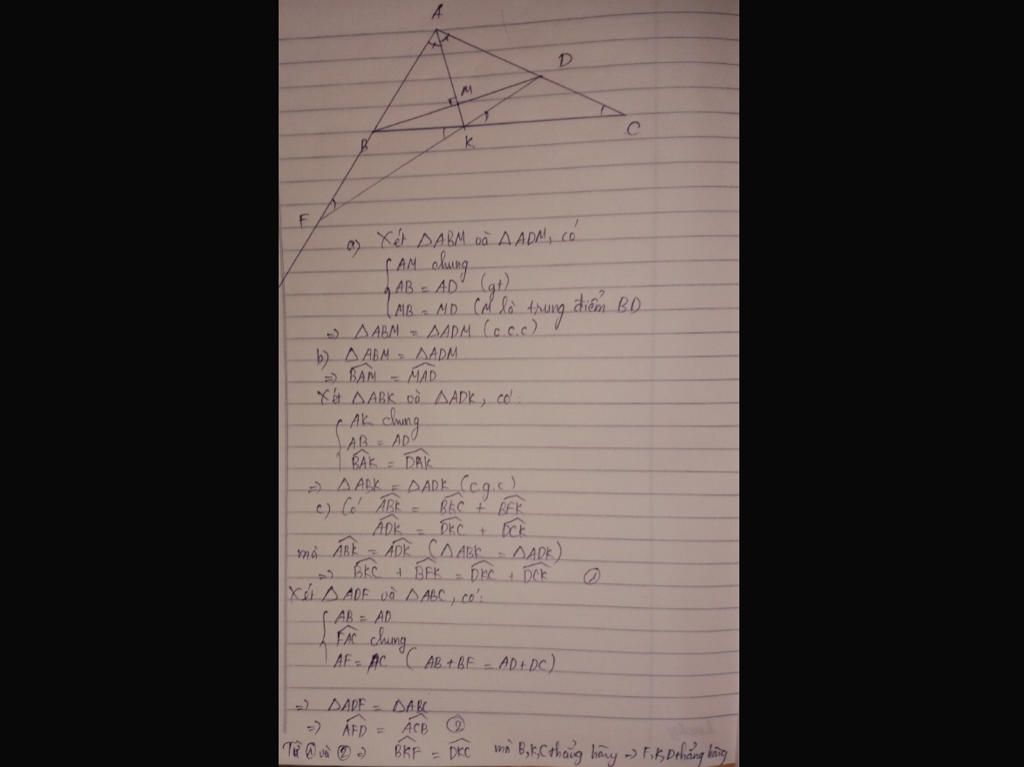 A
D
M
B
K
C
F
a) Xét △ABM và △ADM, có
AM chung
AB = AD (gt)
MB = MD (M là trung điểm BD
=> △ABM = △ADM (c.c.c)
b) △ABM = △ADM
=> BAM = MAD
Xét △ABK và △ADK, có:
AK chung
AB = AD
BAK = DAK
=> △ABK = △ADK (c.g.c)
c) Có ABK = BKC + BFK
ADK = DKC + DCK
mà ABK = ADK (△ABK = △ADK)
=> BKC + BFK = DKC + DCK ①
Xét △ADF và △ABC, có:
AB = AD
FAC chung
AF = AC (AB+BF = AD+DC)
=> △ADF = △ABC
=> AFD = ACB ②
Từ ① và ② => BKF = DKC mà B,K,C thẳng hàng => F,K,D thẳng hàng